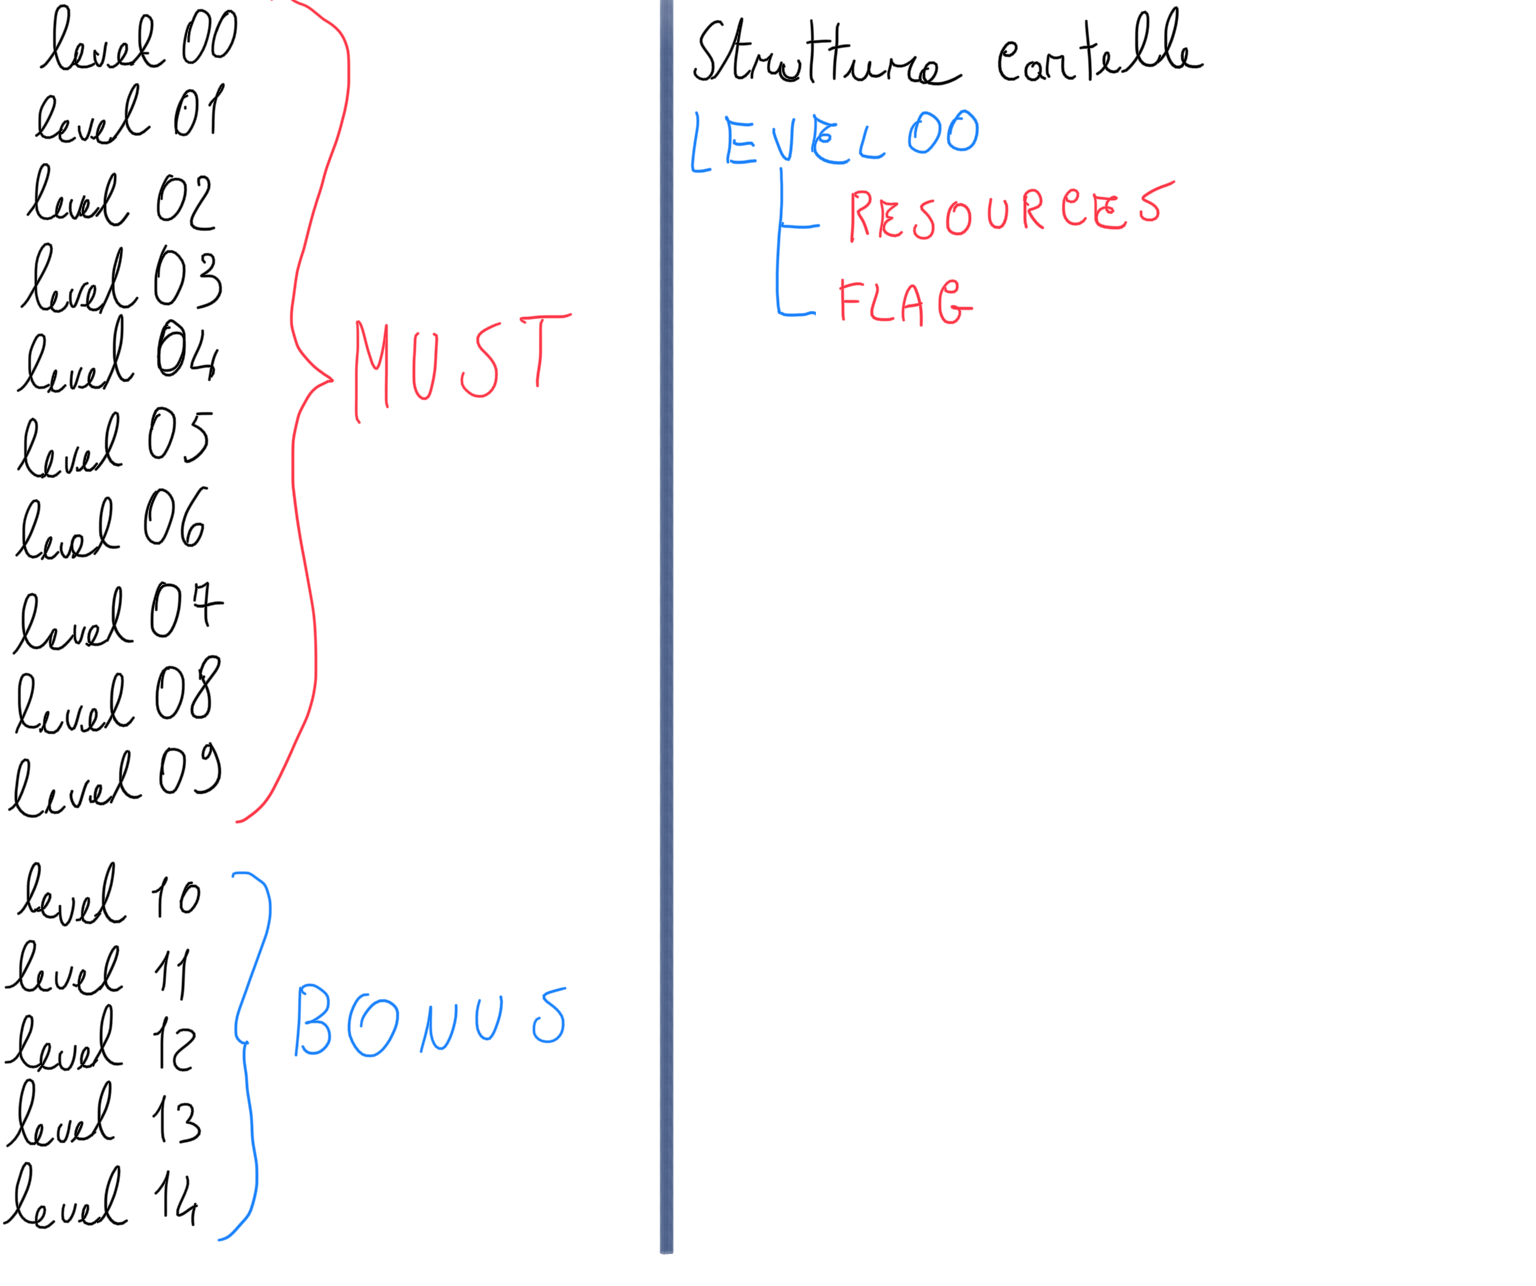 level 00
level 01
level 02
level 03
level 04
level 05
level 06
level 07
level 08
level 09
MUST
level 10
level 11
level 12
level 13
level 14
BONUS
Struttura cartelle
LEVEL 00
RESOURCES
FLAG